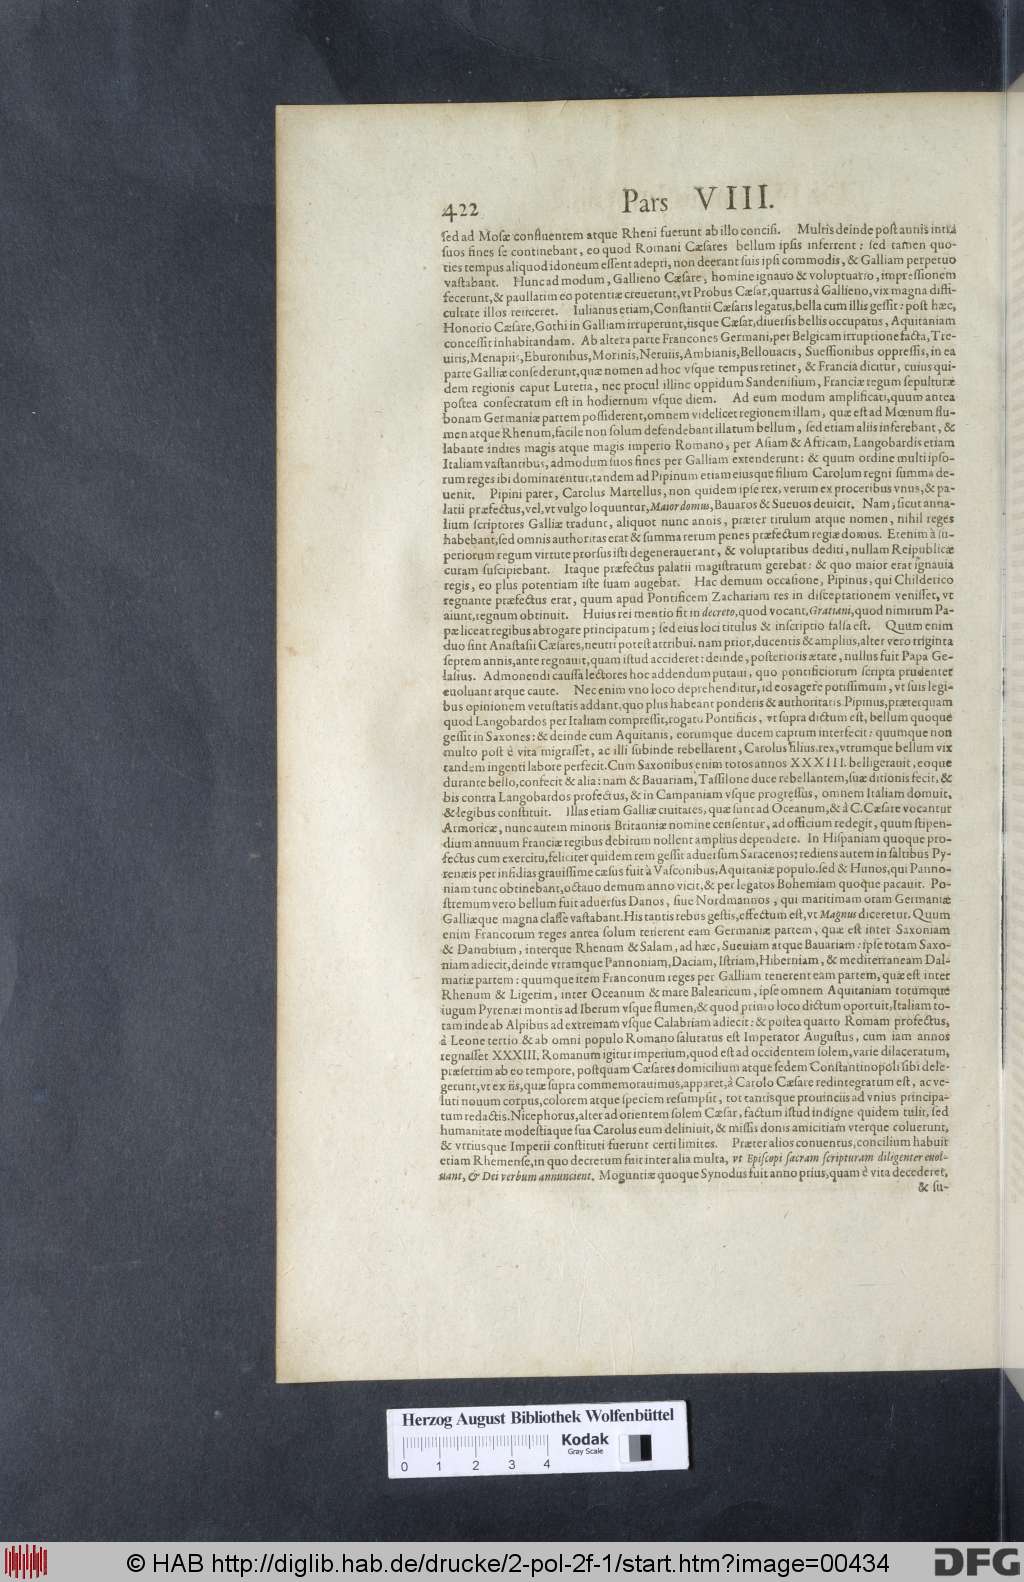 422
Pars VIII.
sed ad Mosæ confluentem atque Rheni fuerunt ab illo concisi. Multis deinde post annis intra
suos fines se continebant, eo quod Romani Cæsares bellum ipsis inferrent: sed tamen quo-
ties tempus aliquod idoneum essent adepti, non deerant suis ipsi commodis, & Galliam perpetuo
vastabant. Hunc ad modum, Gallieno Cæsare, homine ignauo & voluptuario, impressionem
fecerunt, & paullatim eo potentiæ creuerunt, vt Probus Cæsar, quartus à Gallieno, vix magna diffi-
cultate illos reiiceret. Iulianus etiam, Constantii Cæsaris legatus, bella cum illis gessit: post hæc,
Honorio Cæsare, Gothi in Galliam irruperunt, iisque Cæsar, diuersis bellis occupatus, Aquitaniam
concessit inhabitandam. Ab altera parte Francones Germani, per Belgicam irruptione facta, Tre-
uiris, Menapiis, Eburonibus, Morinis, Neruiis, Ambianis, Bellouacis, Suessionibus oppressis, in ea
parte Galliæ consederunt, quæ nomen ad hoc vsque tempus retinet, & Francia dicitur, cuius qui-
dem regionis caput Lutetia, nec procul illinc oppidum Sandenisium, Franciæ regum sepulturæ
postea consecratum est in hodiernum vsque diem. Ad eum modum amplificati, quum antea
bonam Germaniæ partem possiderent, omnem videlicet regionem illam, quæ est ad Mœnum flu-
men atque Rhenum, facile non solum defendebant illatum bellum, sed etiam aliis inferebant, &
labante indies magis atque magis imperio Romano, per Asiam & Africam, Langobardis etiam
Italiam vastantibus, admodum suos fines per Galliam extenderunt: & quum ordine multi ipso-
rum reges ibi dominarentur, tandem ad Pipinum etiam eiusque filium Carolum regni summa de-
uenit. Pipini pater, Carolus Martellus, non quidem ipse rex, verum ex proceribus vnus, & pa-
latii præfectus, vel, vt vulgo loquuntur, Maior domus, Bauaros & Sueuos deuicit. Nam, sicut anna-
lium scriptores Galliæ tradunt, aliquot nunc annis, præter titulum atque nomen, nihil reges
habebant, sed omnis authoritas erat & summa rerum penes præfectum regiæ domus. Etenim à su-
periorum regum virtute prorsus isti degenerauerant, & voluptatibus dediti, nullam Reipublicæ
curam suscipiebant. Itaque præfectus palatii magistratum gerebat: & quo maior erat ignauia
regis, eo plus potentiam iste suam augebat. Hac demum occasione, Pipinus, qui Childerico
regnante præfectus erat, quum apud Pontificem Zachariam res in disceptationem venisset, vt
aiunt, regnum obtinuit. Huius rei mentio fit in decreto, quod vocant, Gratiani, quod nimirum Pa-
pæ liceat regibus abrogare principatum; sed eius loci titulus & inscriptio falsa est. Quum enim
duo sint Anastasii Cæsares, neutri potest attribui. nam prior, ducentis & amplius, alter vero triginta
septem annis, ante regnauit, quam istud accideret: deinde, posterioris ætate, nullus fuit Papa Ge-
lasius. Admonendi caussa lectores hoc addendum putaui, quo pontificiorum scripta prudenter
euoluant atque caute. Nec enim vno loco deprehenditur, id eos agere potissimum, vt suis legi-
bus opinionem vetustatis addant, quo plus habeant ponderis & authoritatis. Pipinus, præterquam
quod Langobardos per Italiam compressit, rogatu Pontificis, vt supra dictum est, bellum quoque
gessit in Saxones: & deinde cum Aquitanis, eorumque ducem captum interfecit: quumque non
multo post è vita migrasset, ac illi subinde rebellarent, Carolus filius, rex, vtrumque bellum vix
tandem ingenti labore perfecit. Cum Saxonibus enim totos annos XXXIII. belligerauit, eoque
durante bello, confecit & alia: nam & Bauariam, Tassilone duce rebellantem, suæ ditionis fecit, &
bis contra Langobardos profectus, & in Campaniam vsque progressus, omnem Italiam domuit,
& legibus constituit. Illas etiam Galliæ ciuitates, quæ sunt ad Oceanum, & à C. Cæsare vocantur
Armoricæ, nunc autem minoris Britanniæ nomine censentur, ad officium redegit, quum stipen-
dium annuum Franciæ regibus debitum nollent amplius dependere. In Hispaniam quoque pro-
fectus cum exercitu, feliciter quidem rem gessit aduersum Saracenos: rediens autem in saltibus Py-
renæis per insidias grauissime cæsus fuit à Vasconibus, Aquitaniæ populo. sed & Hunos, qui Panno-
niam tunc obtinebant, octauo demum anno vicit, & per legatos Bohemiam quoque pacauit. Po-
stremum vero bellum fuit aduersus Danos, siue Nordmannos, qui maritimam oram Germaniæ
Galliæque magna classe vastabant. His tantis rebus gestis, effectum est, vt Magnus diceretur. Quum
enim Francorum reges antea solum tenerent eam Germaniæ partem, quæ est inter Saxoniam
& Danubium, interque Rhenum & Salam, ad hæc, Sueuiam atque Bauariam: ipse totam Saxo-
niam adiecit, deinde vtramque Pannoniam, Daciam, Istriam, Hiberniam, & mediterraneam Dal-
matiæ partem: quumque item Franconum reges per Galliam tenerent eam partem, quæ est inter
Rhenum & Ligerim, inter Oceanum & mare Balearicum, ipse omnem Aquitaniam totumque
iugum Pyrenæi montis ad Iberum vsque flumen, & quod primo loco dictum oportuit, Italiam to-
tam inde ab Alpibus ad extremam vsque Calabriam adiecit: & postea quarto Romam profectus,
à Leone tertio & ab omni populo Romano salutatus est Imperator Augustus, cum iam annos
regnasset XXXIII. Romanum igitur imperium, quod est ad occidentem solem, varie dilaceratum,
præsertim ab eo tempore, postquam Cæsares domicilium atque sedem Constantinopoli sibi dele-
gerunt, vt ex iis, quæ supra commemorauimus, apparet, à Carolo Cæsare redintegratum est, ac ve-
luti nouum corpus, colorem atque speciem resumpsit, tot tantisque prouinciis ad vnius principa-
tum redactis. Nicephorus, alter ad orientem solem Cæsar, factum istud indigne quidem tulit, sed
humanitate modestiaque sua Carolus eum deliniuit, & missis donis amicitiam vterque coluerunt,
& vtriusque Imperii constituti fuerunt certi limites. Præter alios conuentus, concilium habuit
etiam Rhemense, in quo decretum fuit inter alia multa, vt Episcopi sacram scripturam diligenter euol-
uant, & Dei verbum annuncient. Moguntiæ quoque Synodus fuit anno prius, quam è vita decederet,
& su-
Herzog August Bibliothek Wolfenbüttel
Kodak
Gray Scale
0 1 2 3 4
© HAB http://diglib.hab.de/drucke/2-pol-2f-1/start.htm?image=00434
DFG